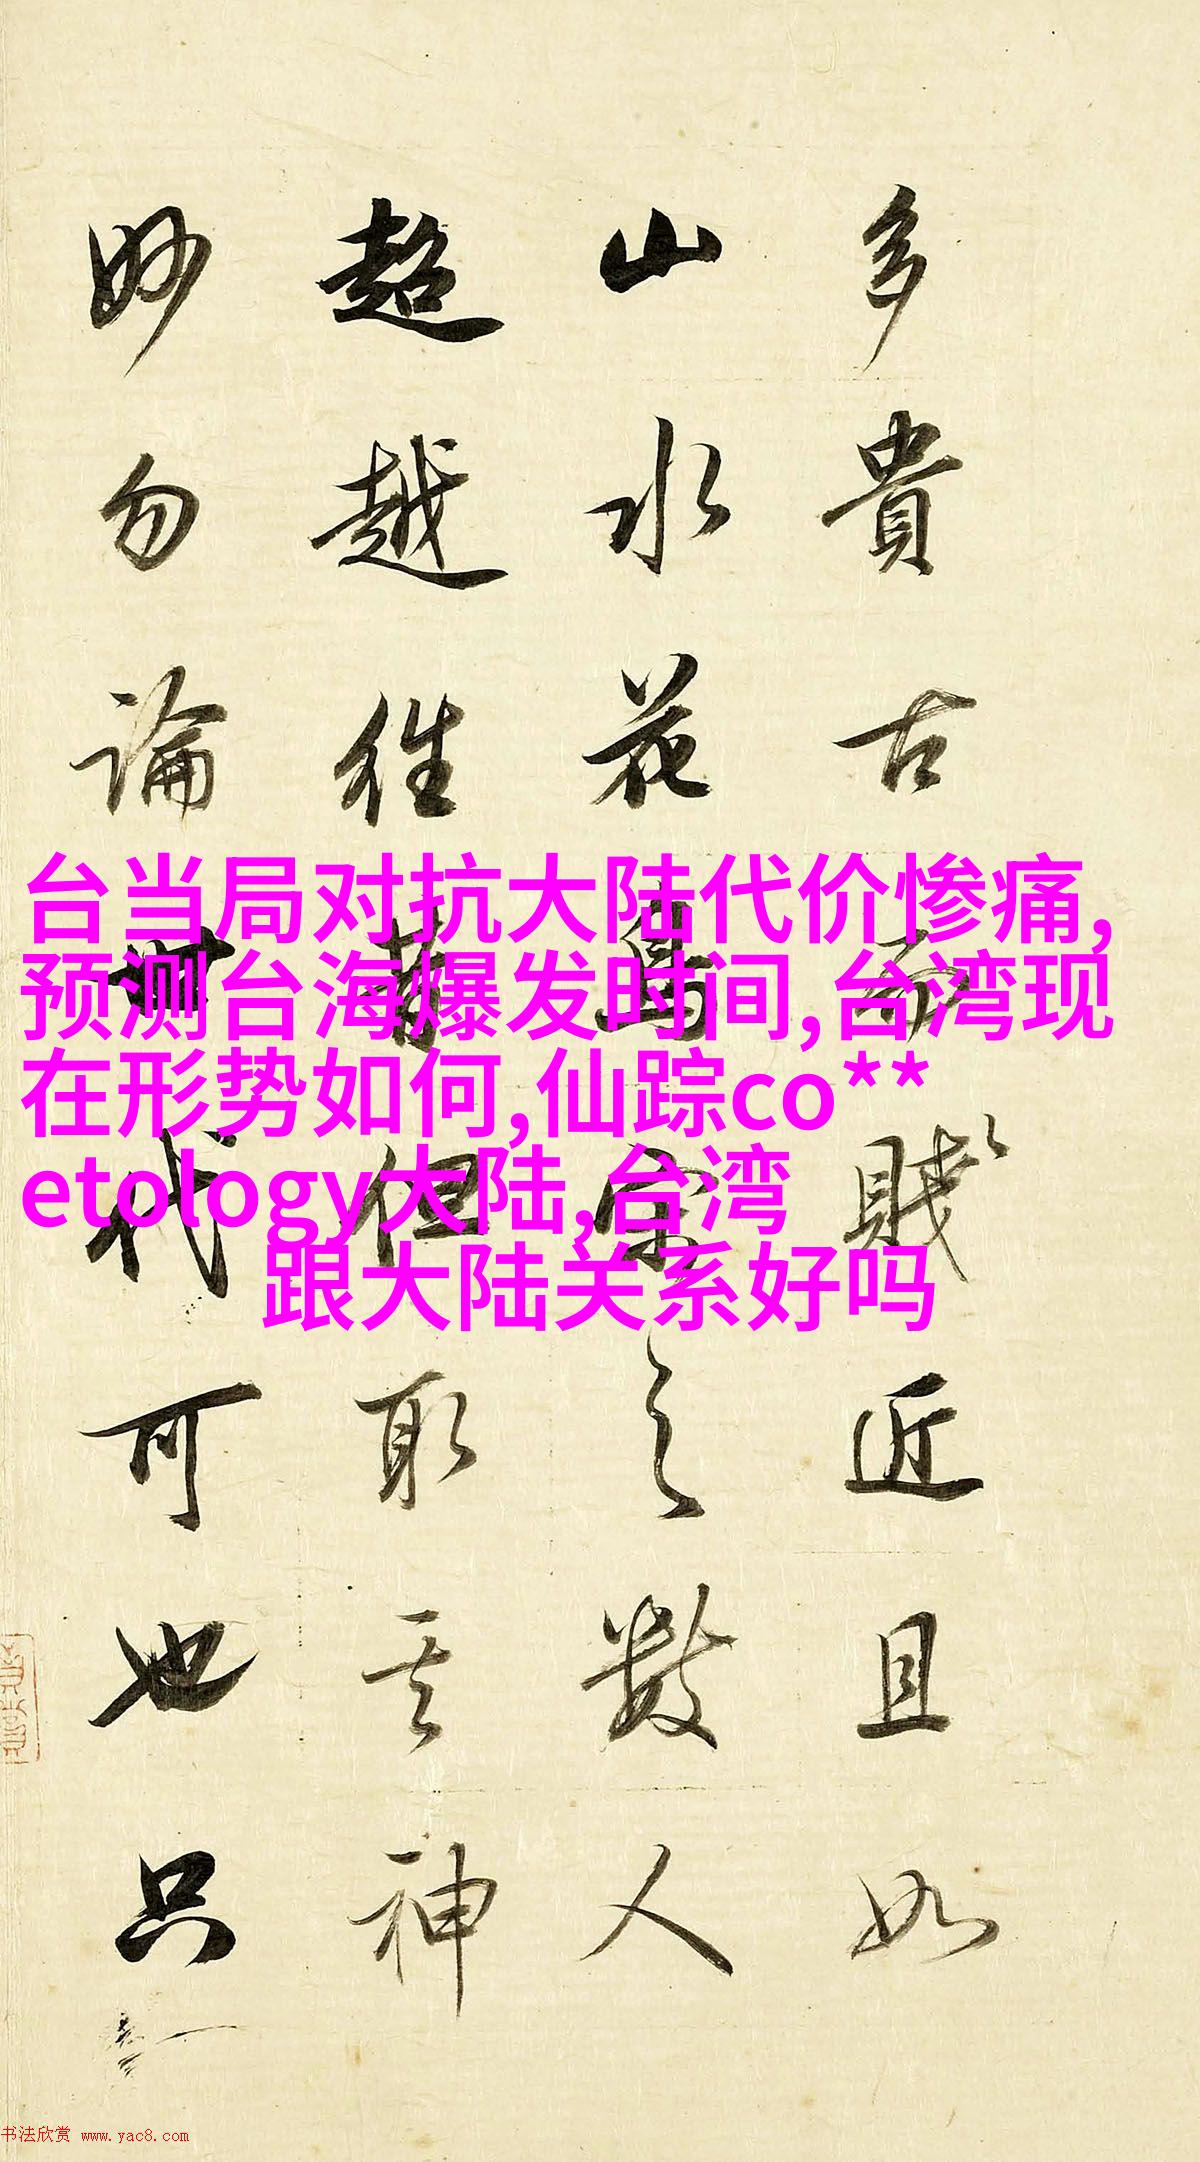 多貴古而賤近且如
山水花鳥宗之數人
超越往昔但取其神
妙勿論世代可也只
台当局对抗大陆代价惨痛,
预测台海爆发时间,台湾现
在形势如何,仙踪co**
etology大陆,台湾
跟大陆关系好吗
书法欣赏 www.yac8.com